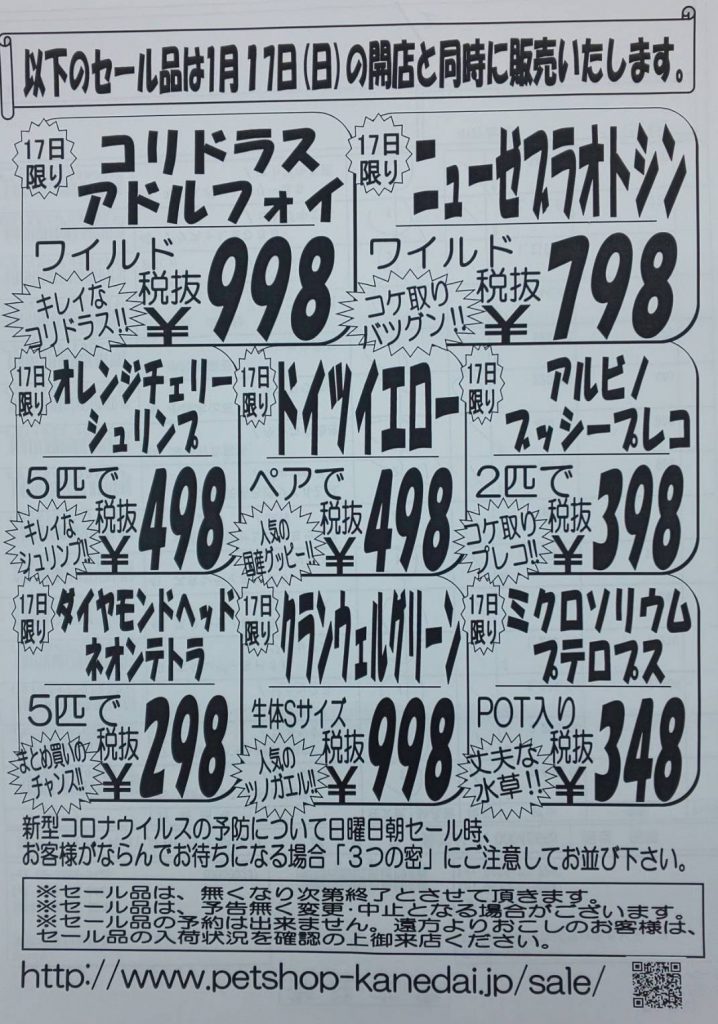 以下のセール品は1月17日(日)の開店と同時に販売いたします。
17日
限り
コリドラス
アドルフォイ
ワイルド
キレイな
コリドラス!!
税抜
¥998
17日
限り
ニューゼブラオトシン
ワイルド
コケ取り
バツグン!!
税抜
¥798
17日
限り
オレンジチェリー
シュリンプ
5匹で
キレイな
シュリンプ!!
税抜
¥498
17日
限り
ドイツイエロー
ペアで
人気の
国産グッピー!!
税抜
¥498
17日
限り
アルビノ
ブッシープレコ
2匹で
コケ取り
プレコ!!
税抜
¥398
17日
限り
ダイヤモンドヘッド
ネオンテトラ
5匹で
まとめ買いの
チャンス!!
税抜
¥298
17日
限り
クランウェルグリーン
生体Sサイズ
人気の
ツノガエル!!
税抜
¥998
17日
限り
ミクロソリウム
プテロプス
POT入り
丈夫な
水草!!
税抜
¥348
新型コロナウイルスの予防について日曜日朝セール時、
お客様がならんでお待ちになる場合「3つの密」にご注意してお並び下さい。
※セール品は、無くなり次第終了とさせて頂きます。
※セール品は、予告無く変更·中止となる場合がございます。
※セール品の予約は出来ません。遠方よりおこしのお客様は、
セール品の入荷状況を確認の上御来店ください。
http://www.petshop-kanedai.jp/sale/